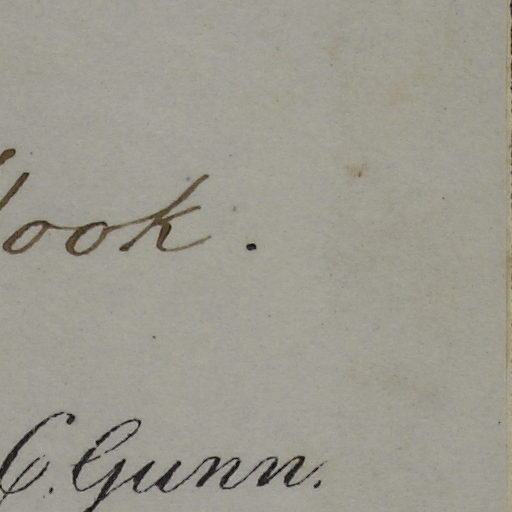 look.
C. Gunn.